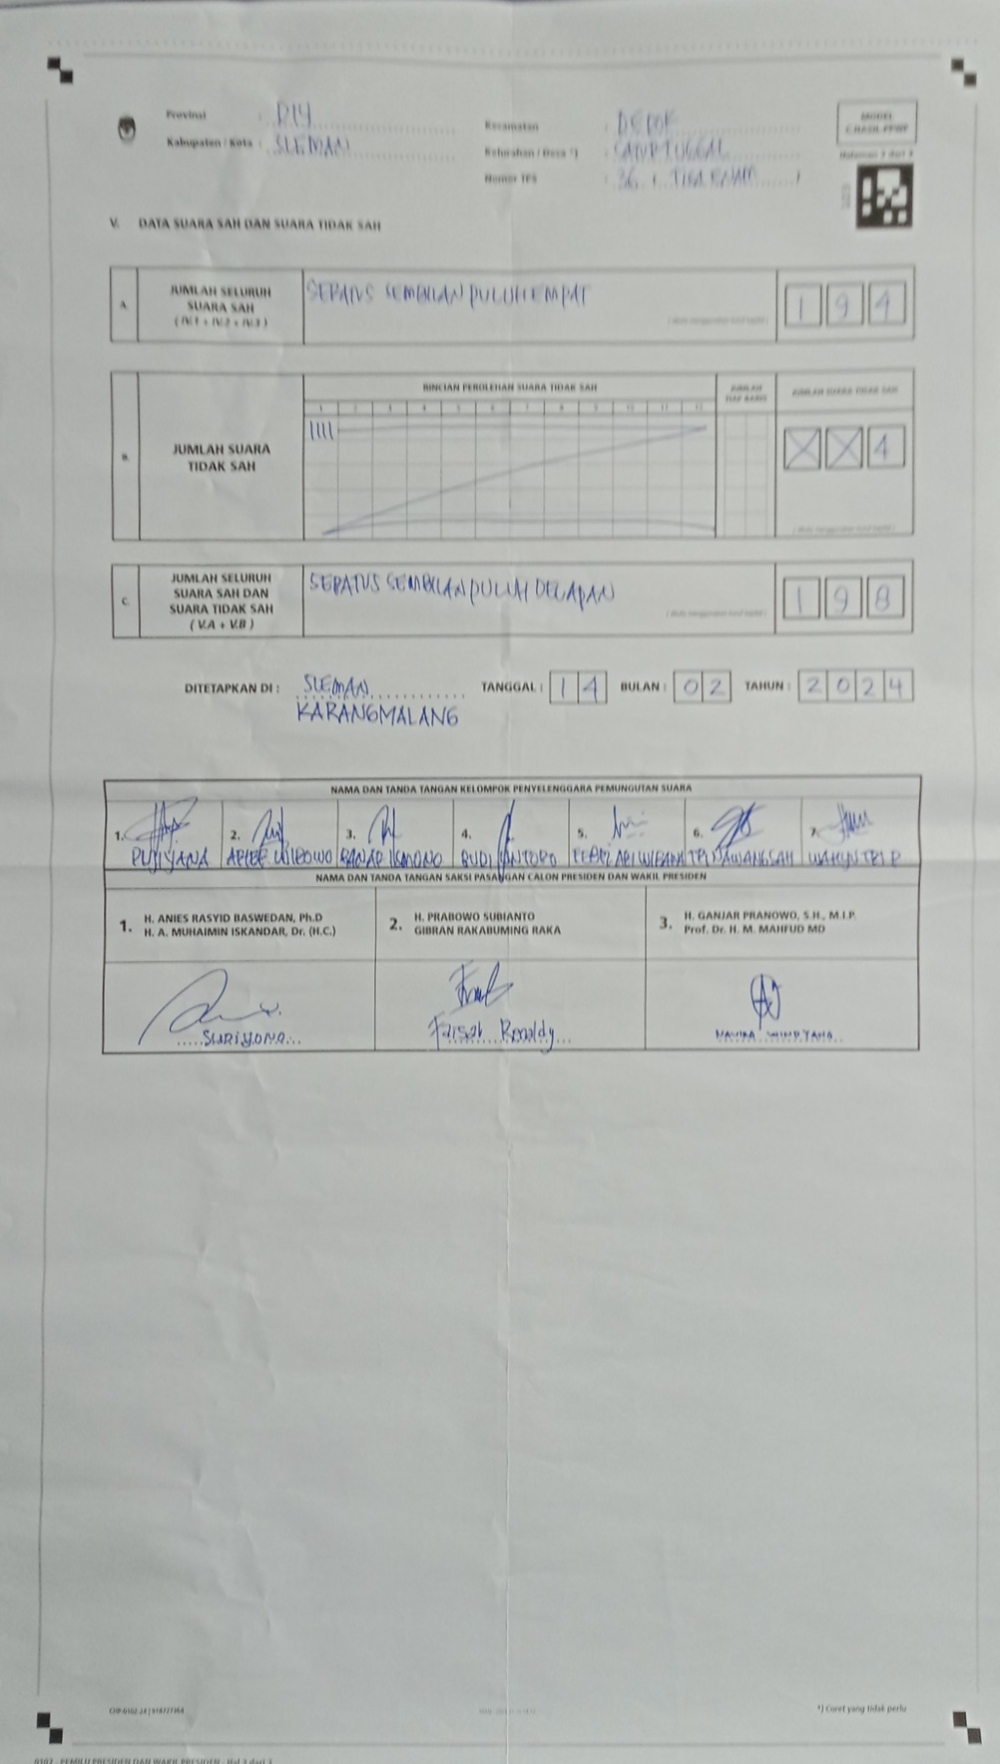 Provinsi : DIY
Kabupaten / Kota : SLEMAN
Kecamatan : DEPOK
Kelurahan / Desa *) : CATURTUNGGAL
Nomor TPS : 36 ( TIGA ENAM )
MODEL
C.HASIL-PPWP
Halaman 3 dari 3
V. DATA SUARA SAH DAN SUARA TIDAK SAH
A. JUMLAH SELURUH SUARA SAH ( IV.1 + IV.2 + IV.3 )
SERATUS SEMBILAN PULUH EMPAT
1 9 4
B. JUMLAH SUARA TIDAK SAH
RINCIAN PEROLEHAN SUARA TIDAK SAH
1 2 3 4 5 6 7 8 9 10 11 12
JUMLAH TIAP BARIS
JUMLAH SUARA TIDAK SAH
IIII
X X 4
C. JUMLAH SELURUH SUARA SAH DAN SUARA TIDAK SAH ( V.A + V.B )
SERATUS SEMBILAN PULUH DELAPAN
1 9 8
DITETAPKAN DI : SLEMAN TANGGAL : 1 4 BULAN : 0 2 TAHUN : 2 0 2 4
KARANGMALANG
NAMA DAN TANDA TANGAN KELOMPOK PENYELENGGARA PEMUNGUTAN SUARA
1. 2. 3. 4. 5. 6. 7.
PUJIYANA WIBOWO ISMONO BUDI WAHYU TRI P
NAMA DAN TANDA TANGAN SAKSI PASANGAN CALON PRESIDEN DAN WAKIL PRESIDEN
1. H. ANIES RASYID BASWEDAN, Ph.D
H. A. MUHAIMIN ISKANDAR, Dr. (H.C.)
2. H. PRABOWO SUBIANTO
GIBRAN RAKABUMING RAKA
3. H. GANJAR PRANOWO, S.H., M.I.P.
Prof. Dr. H. M. MAHFUD MD
SURIYONO
Faisal Renaldy
*) Coret yang tidak perlu